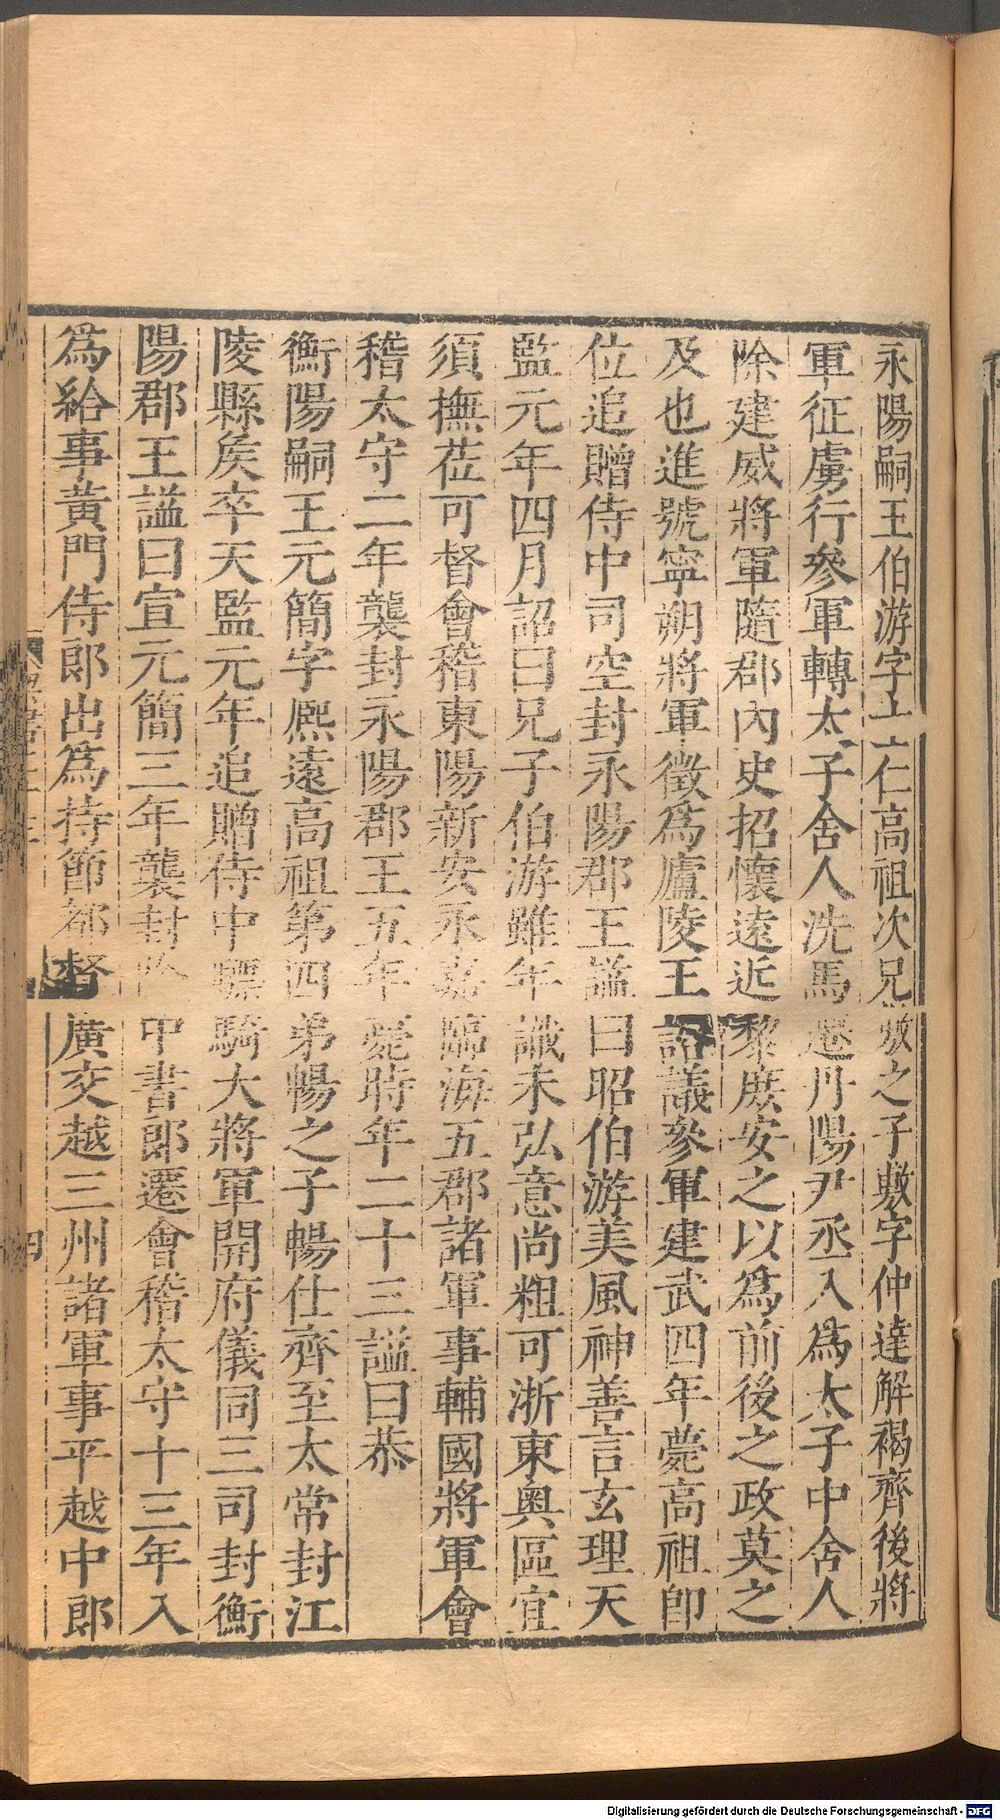 永陽嗣王伯游字士仁高祖次兄敷之子敷字仲達解褐齊後將
軍征虜行參軍轉太子舍人洗馬遷丹陽尹丞入為太子中舍人
除建威將軍隨郡內史招懷遠近黎庶安之以為前後之政莫之
及也進號寧朔將軍徵為廬陵王諮議參軍建武四年薨高祖即
位追贈侍中司空封永陽郡王諡曰昭伯游美風神善言玄理天
監元年四月詔曰兄子伯游雖年識未弘意尚粗可浙東奧區宜
須撫莅可督會稽東陽新安永嘉臨海五郡諸軍事輔國將軍會
稽太守二年襲封永陽郡王五年薨時年二十三諡曰恭
衡陽嗣王元簡字熈遠高祖第四弟暢之子暢仕齊至太常封江
陵縣矦卒天監元年追贈侍中驃騎大將軍開府儀同三司封衡
陽郡王諡曰宣元簡三年襲封除中書郎遷會稽太守十三年入
為給事黃門侍郎出為持節都督廣交越三州諸軍事平越中郎
四
Digitalisierung gefördert durch die Deutsche Forschungsgemeinschaft - DFG